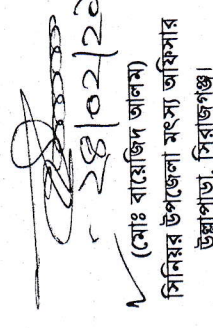 28/02/20
(মোঃ বায়েজিদ আলম)
সিনিয়র উপজেলা মৎস্য অফিসার
উল্লাপাড়া, সিরাজগঞ্জ।